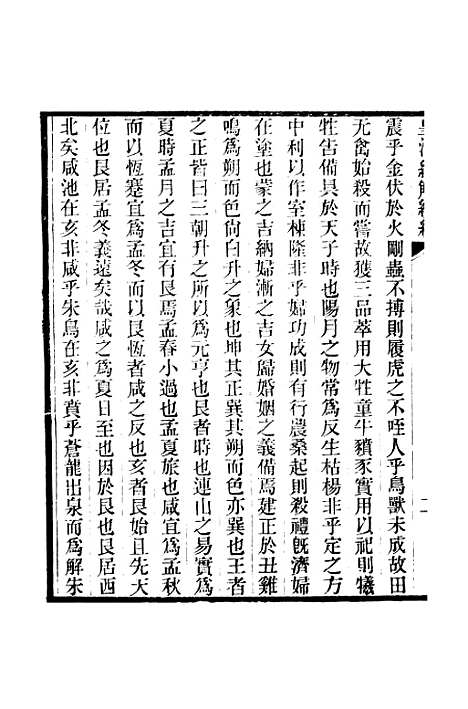 皇清經解續編
二
震乎金伏於火剛蟲不搏則履虎之不咥人乎鳥獸未成故田
无禽始殺而嘗故獲三品萃用大牲童牛豶豕實用以祀則犧
牲告備具於天子時也陽月之物常爲反生枯楊非乎定之方
中利以作室棟隆非乎婦功成則有行農桑起則殺禮旣濟婦
在塗也蒙之吉納婦漸之吉女歸婚姻之義備焉建正於丑雞
鳴爲朔而色尙白升之象也坤其正巽其朔而色亦巽也王者
之正皆曰三朝升之所以爲元亨也艮者時也連山之易實爲
夏時孟月之吉宜有艮焉孟春小過也孟夏旅也咸宜爲孟秋
而以恆蹇宜爲孟冬而以艮恆者咸之反也亥者艮始且先天
位也艮居孟冬義遠矣哉咸之爲夏日至也因於艮也艮居西
北矣咸池在亥非咸乎朱鳥在亥非賁乎蒼龍出泉而爲解朱